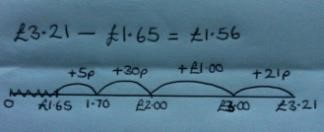 £3.21 - £1.65 = £1.56
+5p +30p +£1.00 +21p
0 £1.65 1.70 £2.00 £3.00 £3.21